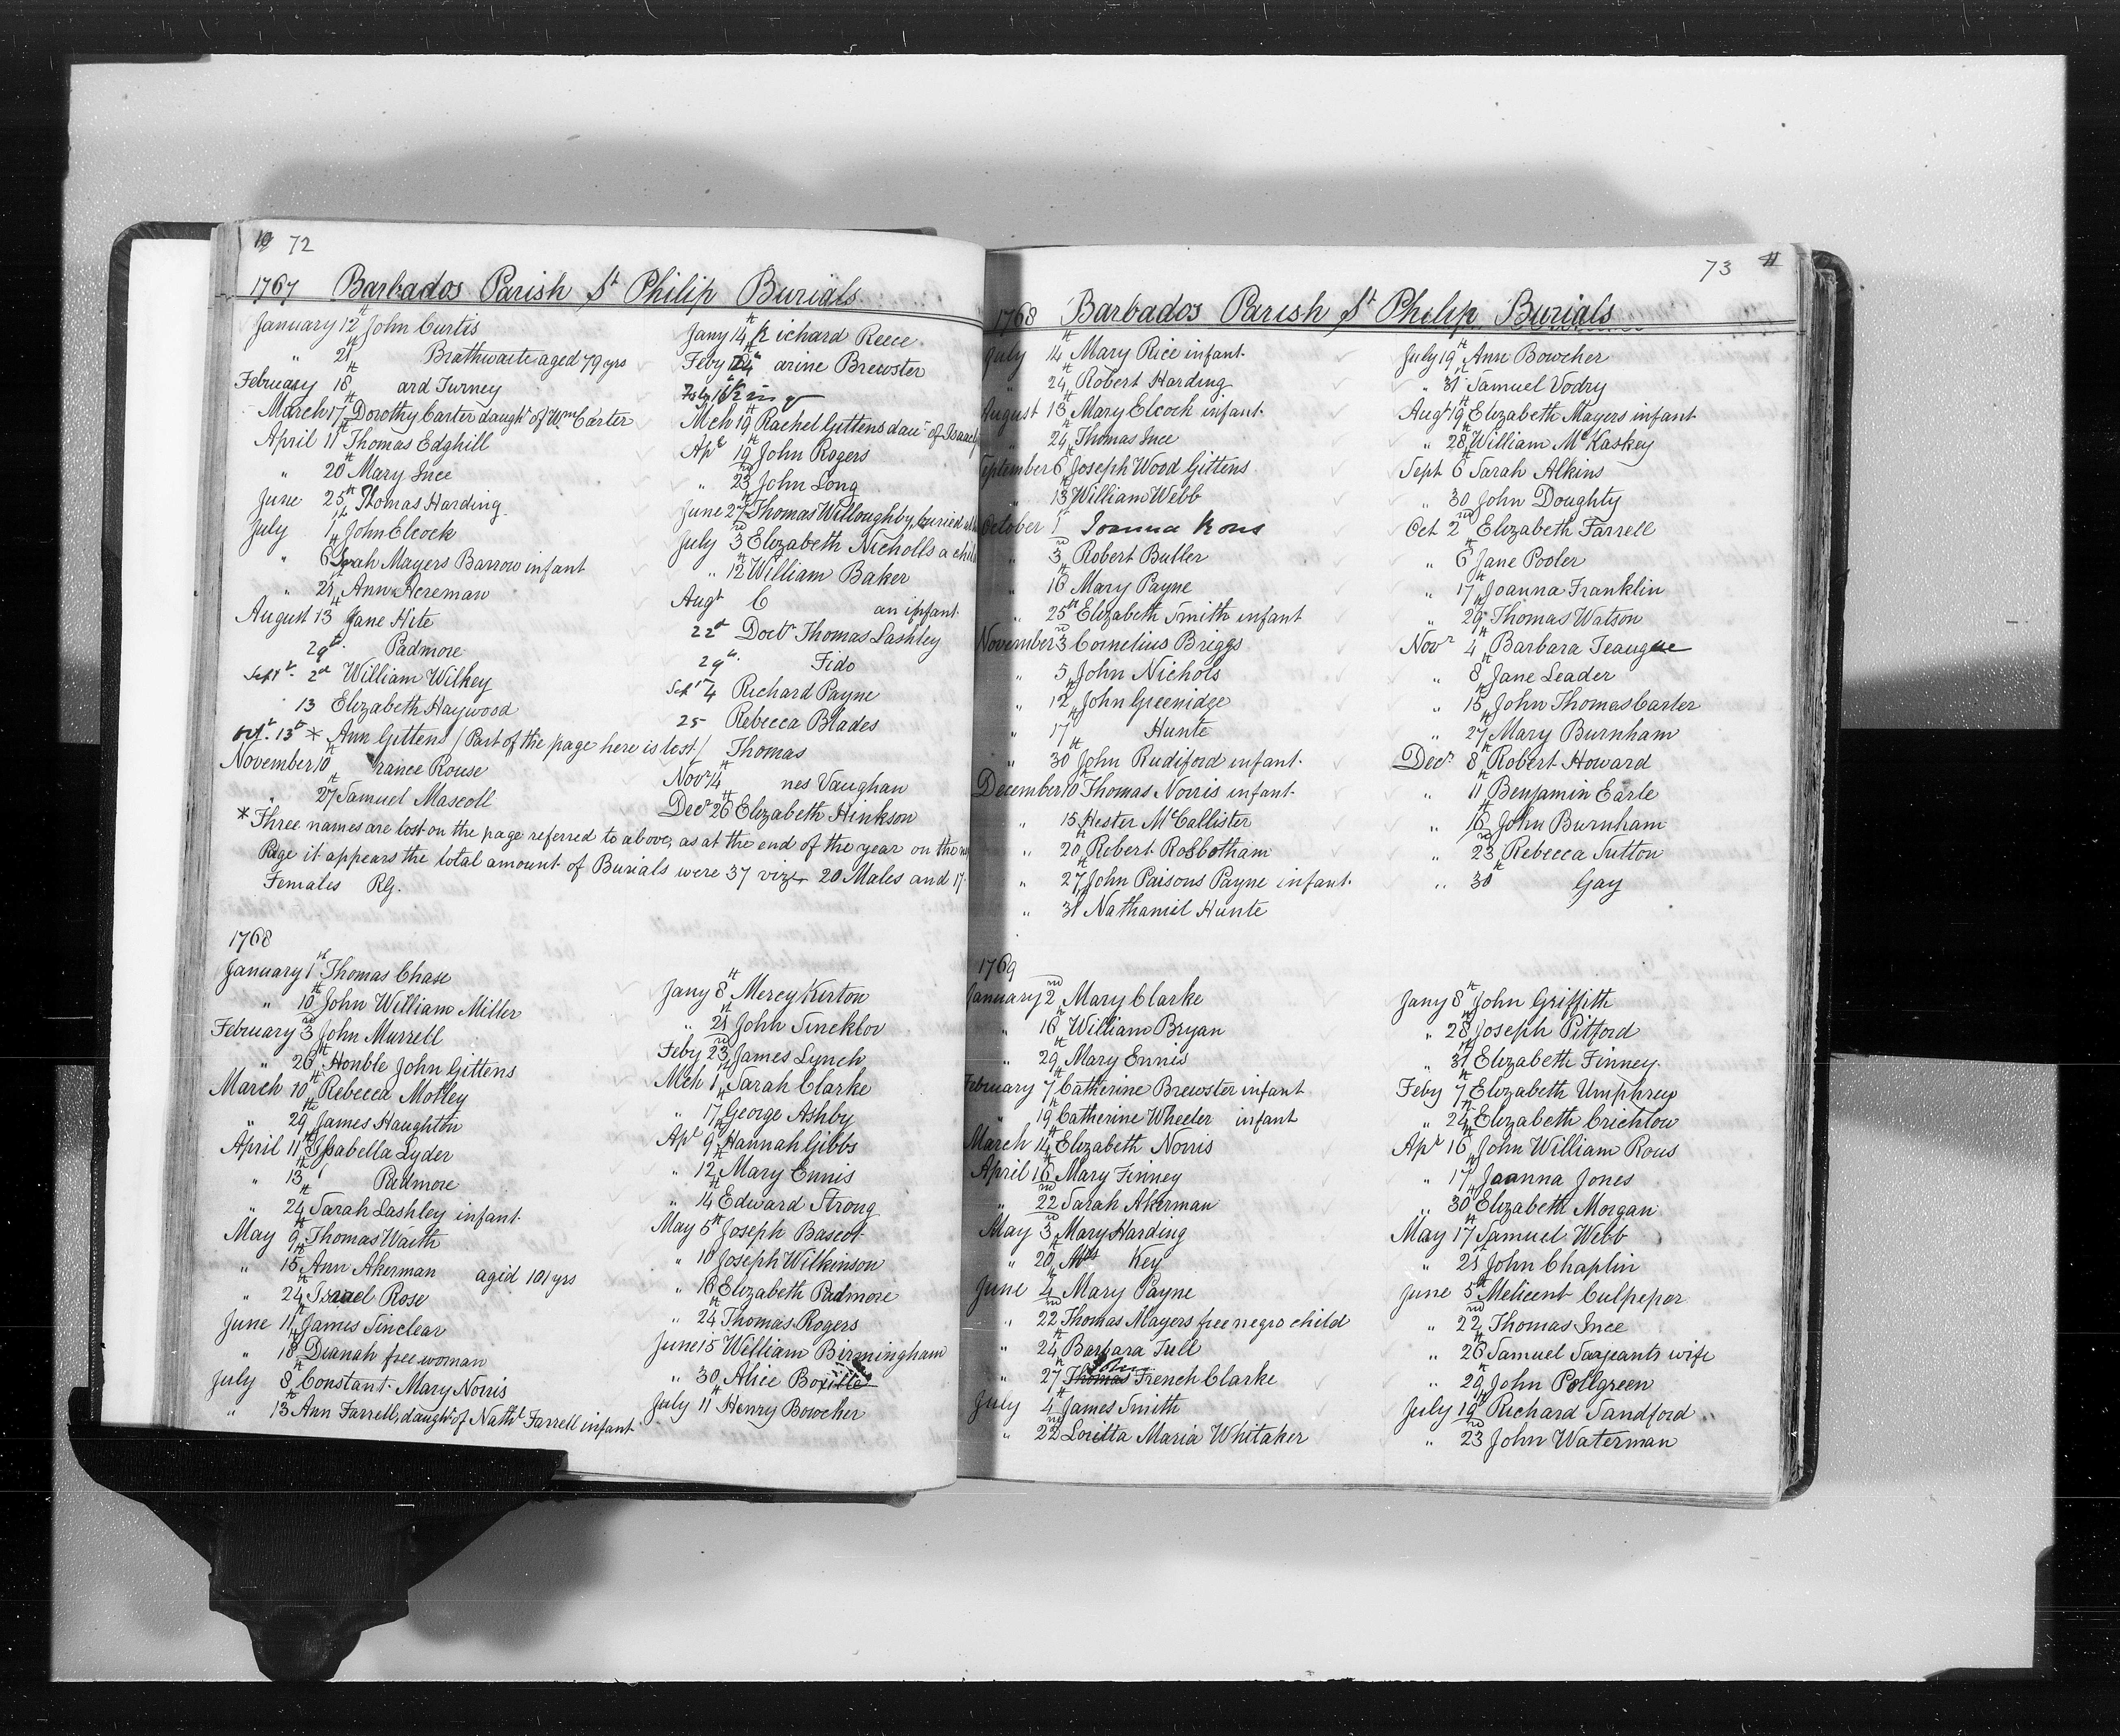 10 72
1767 Barbados Parish St Philip Burials
January 12th John Curtis
" 21st Brathwaite aged 79 yrs
February 18th ard Turney
March 17th Dorothy Carter daught of Wm Carter
April 11th Thomas Edghill
" 20th Mary Ince
June 25th Thomas Harding
July 1st John Elcock
" 6th Sarah Mayers Barrow infant
" 21st Ann Acreman
August 13th Jane Hite
29th Padmore
Septr 2d William Wilkey
13 Elizabeth Haywood
Oct. 13th * Ann Gittens / Part of the page here is lost /
November 10 rance Rouse
" 27th Samuel Mascoll
Jany 14th Richard Reece
Feby 24th arine Brewster
Feby King
Mch 19th Rachel Gittens dau of Isaac
Apl 19th John Rogers
" 23rd John Long
June 27th Thomas Willoughby, buried
July 3rd Elizabeth Nicholls a chil
" 12th William Baker
Augt 6 an infant
22d Doctr Thomas Lashley
29th Fido
Sept 4 Richard Payne
25 Rebecca Blades
Thomas
Novr 4th nes Vaughan
Decr 26th Elizabeth Hinkson
* Three names are lost on the page referred to above, as at the end of the year on the
Page it appears the total amount of Burials were 37 vizt 20 Males and 17
Females Rg.
1768
January 1st Thomas Chase
" 10th John William Miller
February 3rd John Murrell
" 26th Honble John Gittens
March 10th Rebecca Motley
" 29th James Haughton
April 11th Issabella Lyder
" 13th Padmore
" 24th Sarah Lashley infant
May 9th Thomas Waith
" 15th Ann Akerman aged 101 yrs
" 24th Israel Rose
June 11th James Sinclear
" 18th Dianah free woman
July 8th Constant Mary Norris
" 13th Ann Farrell, daught of Nathl Farrell infant
Jany 8th Mercy Kirton
" 21st John Sincklor
Feby 23rd James Lynch
Mch 1st Sarah Clarke
" 17th George Ashby
Apl 9th Hannah Gibbs
" 12th Mary Ennis
" 14th Edward Strong
May 5th Joseph Bascot
" 10 Joseph Wilkinson
" 16 Elizabeth Padmore
" 24th Thomas Rogers
June 15 William Birmingham
" 30 Alice
July 11th Henry Bowcher
73 11
1768 Barbados Parish St Philip Burials
July 14th Mary Rice infant
" 24th Robert Harding
August 13th Mary Elcock infant
" 24th Thomas Ince
September 6th Joseph Wood Gittens
" 13th William Webb
October 1st Joanna Rous
" 3rd Robert Butler
" 16th Mary Payne
" 25th Elizabeth Smith infant
November 3rd Cornelius Briggs
" 5 John Nichols
" 12th John Greenidge
" 17th Hunte
" 30th John Rudiford infant
December 10th Thomas Norris infant
" 15 Hester McCallister
" 20th Robert Rosbotham
" 27th John Paisons Payne infant
" 31st Nathaniel Hunte
July 19th Ann Bowcher
" 31st Samuel Vodry
Augt 19th Elizabeth Mayers infant
" 28th William McKaskey
Sept 6th Sarah Alkins
" 30 John Doughty
Oct 2nd Elizabeth Farrell
" 6th Jane Pooler
" 17th Joanna Franklin
" 29th Thomas Watson
Novr 4th Barbara Teaugue
" 8th Jane Leader
" 15th John Thomas Carter
" 27th Mary Burnham
Decr 8th Robert Howard
" 11 Benjamin Earle
" 16th John Burnham
" 23rd Rebecca Sutton
" 30th Gay
1769
January 2nd Mary Clarke
" 16th William Bryan
" 29th Mary Ennis
February 7th Catherine Brewster infant
" 19th Catherine Wheeler infant
March 14th Elizabeth Norris
April 16th Mary Finney
" 22nd Sarah Akerman
May 3rd Mary Harding
" 20th Mrs Key
June 4th Mary Payne
" 22nd Thomas Mayers free negro child
" 24th Barbara Tull
" 27th Thomas John French Clarke
July 4th James Smith
" 22nd Loritta Maria Whitaker
Jany 8th John Griffith
" 28th Joseph Pitford
" 31st Elizabeth Finney
Feby 7th Elizabeth Umphrey
" 24th Elizabeth Crichlow
Apl 16th John William Rous
" 17th Joanna Jones
" 30th Elizabeth Morgan
May 17th Samuel Webb
" 21st John Chaplin
June 5th Melicent Culpeper
" 22nd Thomas Ince
" 26th Samuel Sargeants wife
" 29th John Pollgreen
July 19th Richard Sandford
" 23rd John Waterman